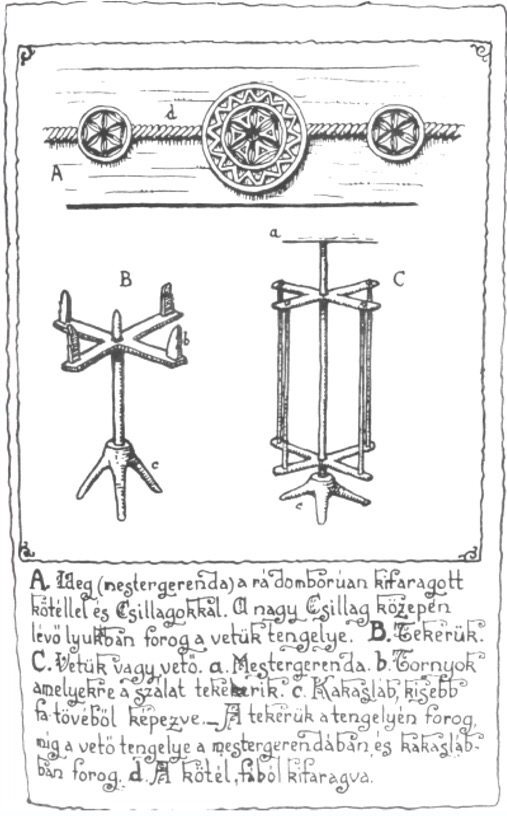 d
A
a
B
C
b
c
c
A. Ideg (mestergerenda) a rá domborúan kifaragott
kötéllel és Csillagokkal. A nagy Csillag közepén
lévő lyukban forog a vetük tengelye. B. Tekerük.
C. Vetük vagy vető. a. Mestergerenda. b. Tornyok
amelyekre a szálat tekerik. c. Kakasláb, kisebb
fa tövéből képezve._ A tekerük a tengelyén forog,
míg a vető tengelye a mestergerendában, és kakasláb-
ban forog. d. A kötél, fából kifaragva.